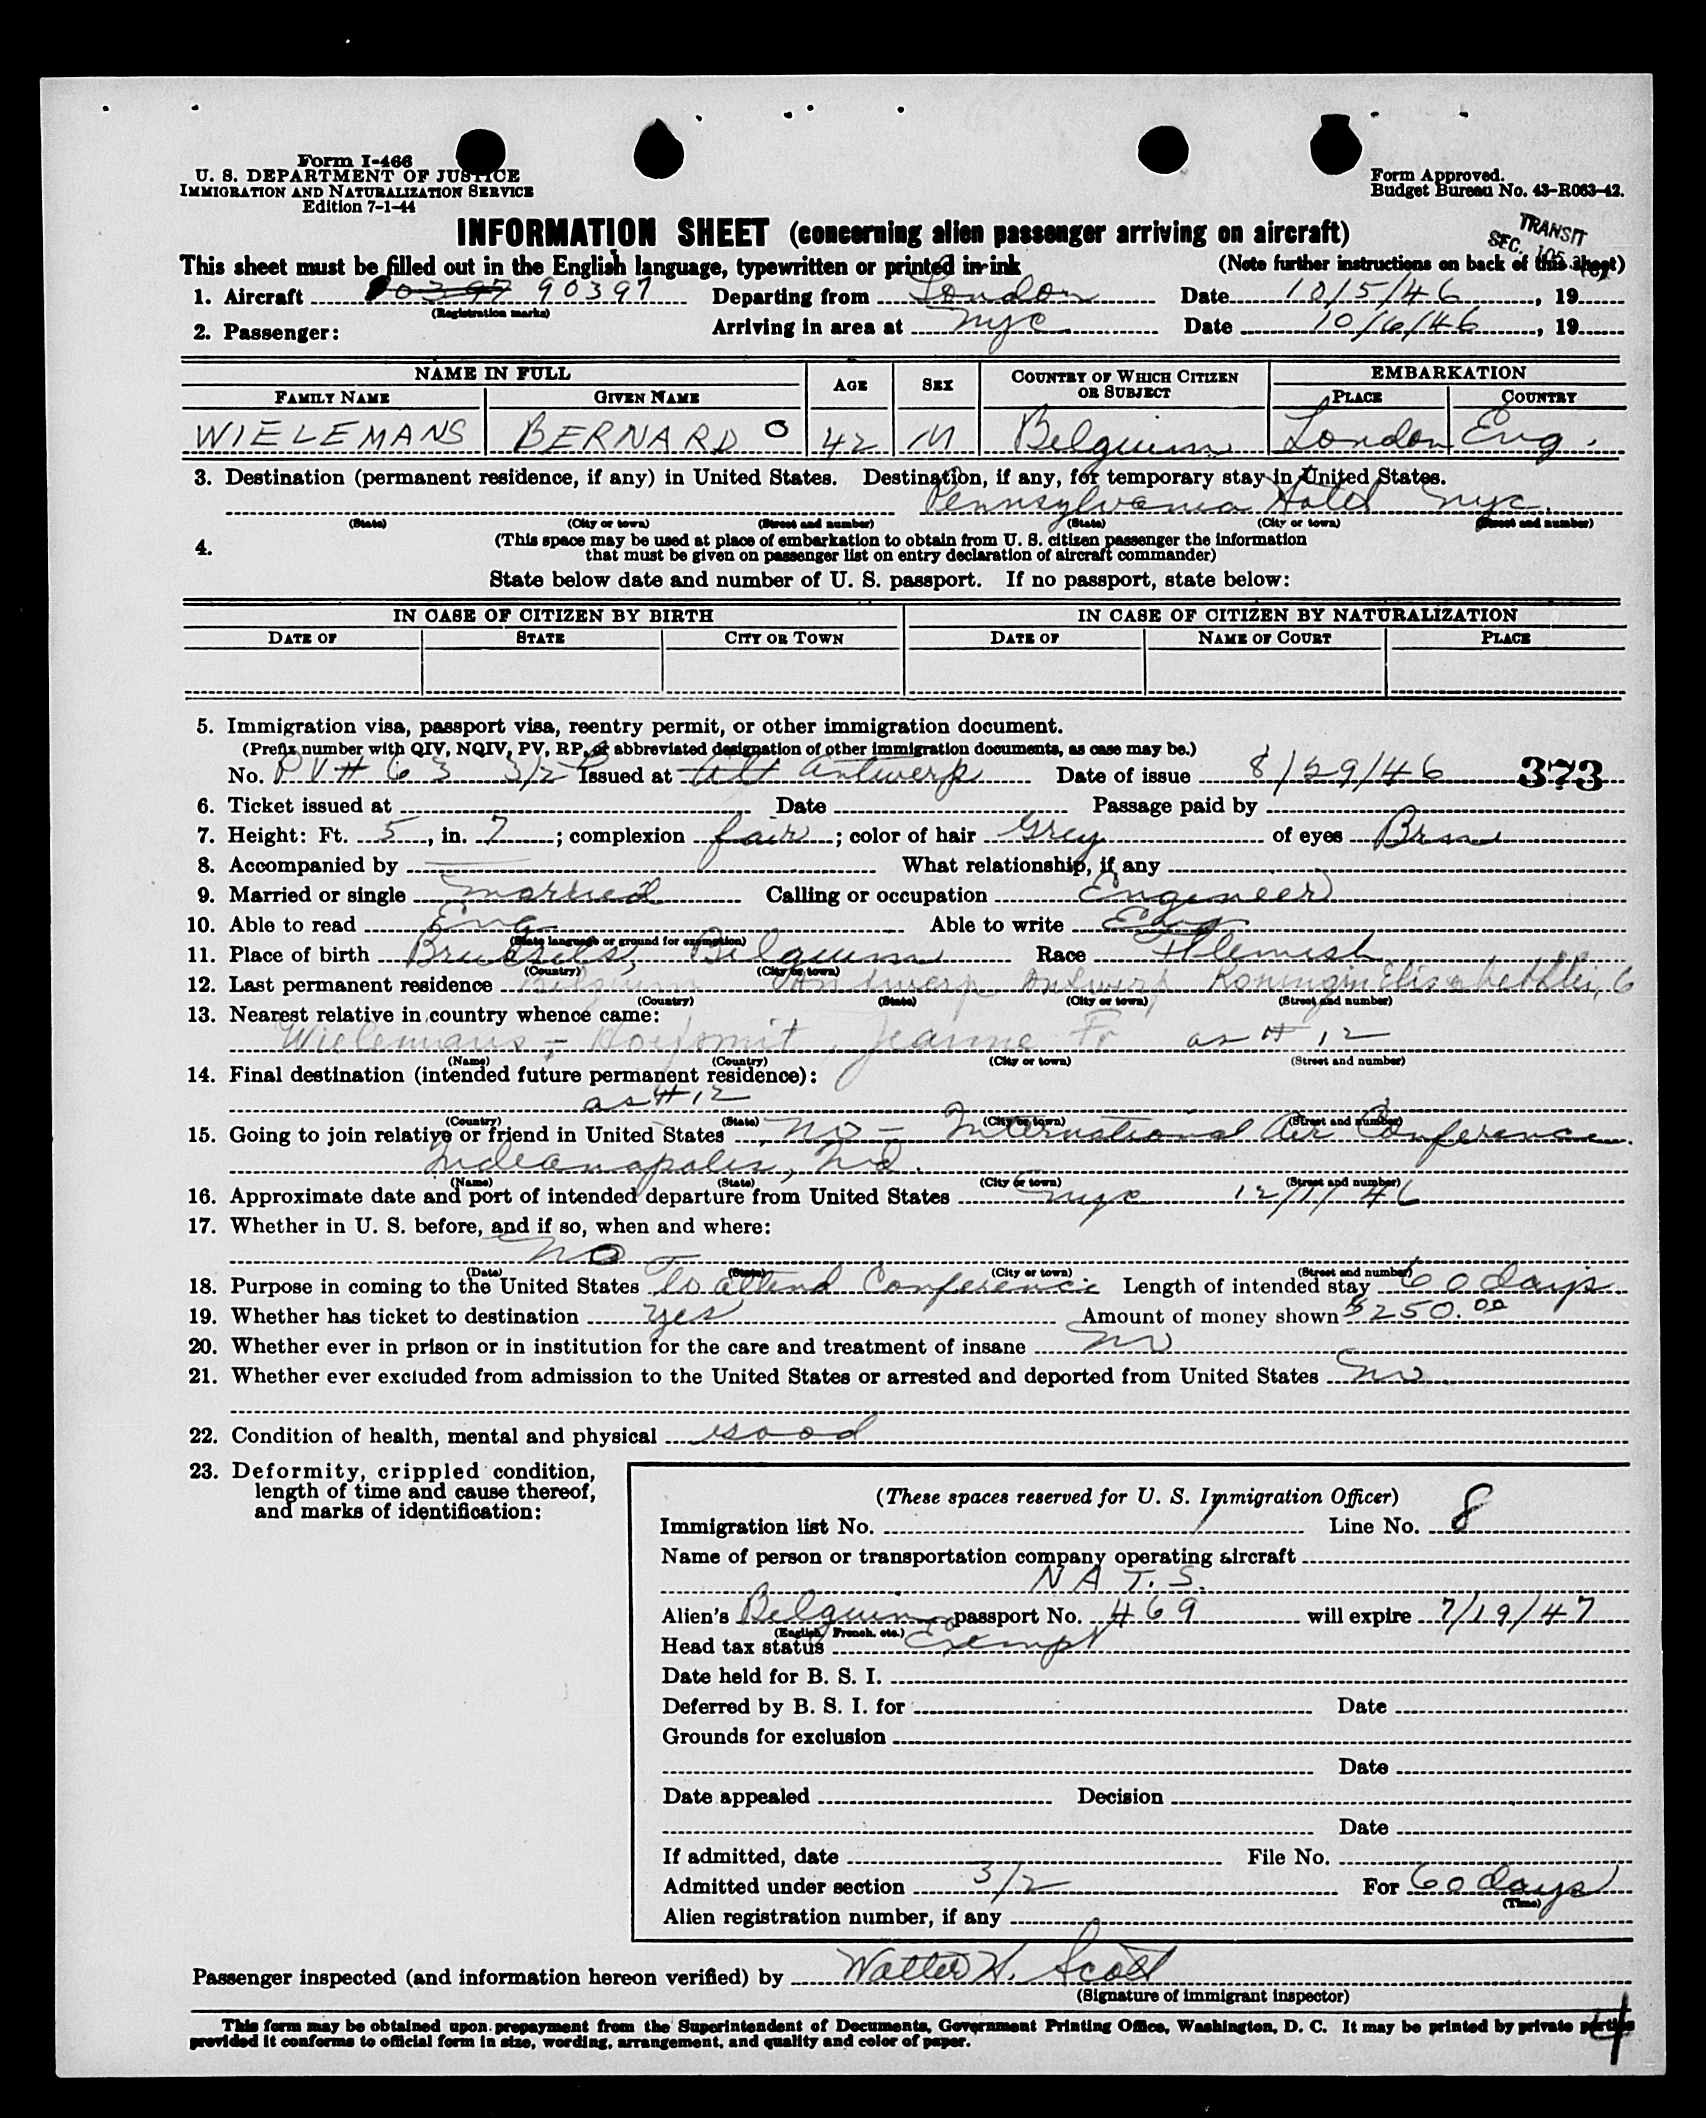 Form I-466
U. S. DEPARTMENT OF JUSTICE
IMMIGRATION AND NATURALIZATION SERVICE
Edition 7-1-44
Form Approved.
Budget Bureau No. 43-R063-42.
INFORMATION SHEET (concerning alien passenger arriving on aircraft)
TRANSIT
SEC.
This sheet must be filled out in the English language, typewritten or printed in ink (Note further instructions on back of this sheet)
1. Aircraft 90397 Departing from London Date 10/5/46, 19
(Registration marks)
2. Passenger: Arriving in area at nyc Date 10/6/46, 19
NAME IN FULL AGE SEX COUNTRY OF WHICH CITIZEN OR SUBJECT EMBARKATION
FAMILY NAME GIVEN NAME PLACE COUNTRY
WIELEMANS BERNARD O 42 M Belguim London Eng.
3. Destination (permanent residence, if any) in United States. Destination, if any, for temporary stay in United States.
Pennsylvania Hotel nyc.
(State) (City or town) (Street and number) (State) (City or town) (Street and number)
4. (This space may be used at place of embarkation to obtain from U. S. citizen passenger the information
that must be given on passenger list on entry declaration of aircraft commander)
State below date and number of U. S. passport. If no passport, state below:
IN CASE OF CITIZEN BY BIRTH IN CASE OF CITIZEN BY NATURALIZATION
DATE OF STATE CITY OR TOWN DATE OF NAME OF COURT PLACE
5. Immigration visa, passport visa, reentry permit, or other immigration document.
(Prefix number with QIV, NQIV, PV, RP, or abbreviated designation of other immigration documents, as case may be.)
No. PV # 63 3/2 Issued at Antwerp Date of issue 8/29/46 373
6. Ticket issued at Date Passage paid by
7. Height: Ft. 5, in. 7; complexion fair; color of hair Grey of eyes Brn
8. Accompanied by — What relationship, if any
9. Married or single married Calling or occupation Engineer
10. Able to read Eng Able to write Eng
(State language or ground for exemption)
11. Place of birth Brussels, Belguim Race Flemish
(Country) (City or town)
12. Last permanent residence Belgium Antwerp Antwerp Koningin Elisabethlei, 6
(Country) (State) (City or town) (Street and number)
13. Nearest relative in country whence came:
Wielemans - Jeanne Fr as # 12
(Name) (Country) (City or town) (Street and number)
14. Final destination (intended future permanent residence):
as # 12
(Country) (State) (City or town) (Street and number)
15. Going to join relative or friend in United States no - International Air Conference
Indeanapolis, Ind.
(Name) (State) (City or town) (Street and number)
16. Approximate date and port of intended departure from United States nyc 12/1/46
17. Whether in U. S. before, and if so, when and where:
no
(Date) (State) (City or town) (Street and number)
18. Purpose in coming to the United States To attend Conference Length of intended stay 60 days
19. Whether has ticket to destination yes Amount of money shown $250.00
20. Whether ever in prison or in institution for the care and treatment of insane no
21. Whether ever excluded from admission to the United States or arrested and deported from United States no
22. Condition of health, mental and physical good
23. Deformity, crippled condition,
length of time and cause thereof,
and marks of identification:
(These spaces reserved for U. S. Immigration Officer)
Immigration list No. Line No. 8
Name of person or transportation company operating aircraft
N A T. S.
Alien's Belguim passport No. 469 will expire 7/19/47
(English, French, etc.)
Head tax status Exempt
Date held for B. S. I.
Deferred by B. S. I. for Date
Grounds for exclusion
Date
Date appealed Decision
Date
If admitted, date File No.
Admitted under section 3/2 For 60 days
(Time)
Alien registration number, if any
Passenger inspected (and information hereon verified) by Walter H. Scott
(Signature of immigrant inspector)
This form may be obtained upon prepayment from the Superintendent of Documents, Government Printing Office, Washington, D. C. It may be printed by private parties
provided it conforms to official form in size, wording, arrangement, and quality and color of paper.
4